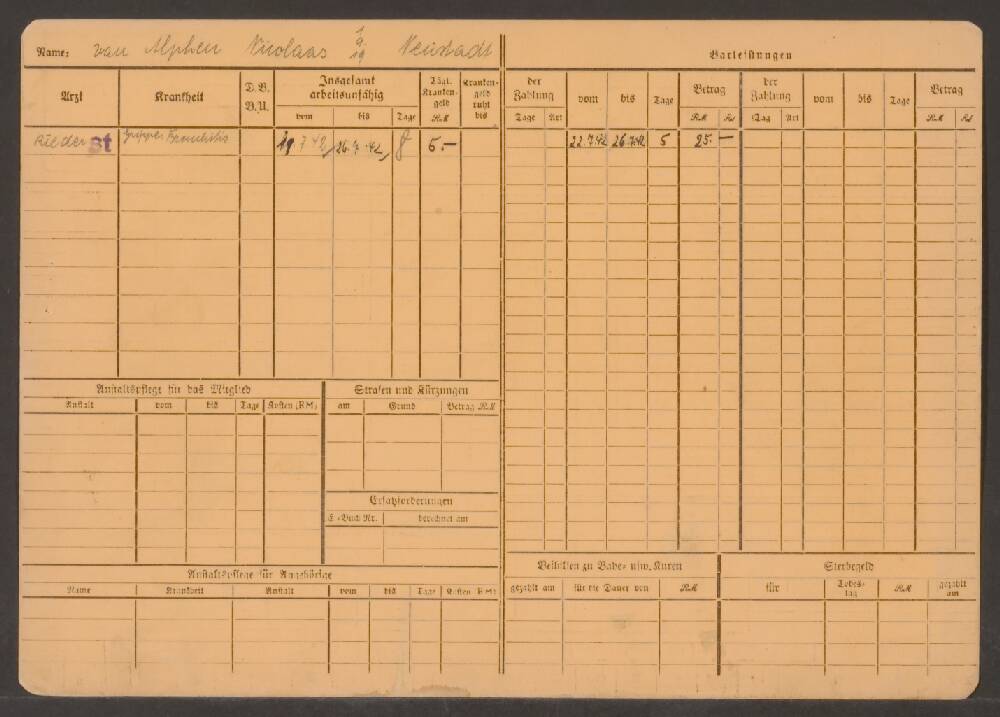 Name: van Alphen Nicolaas Neustadt
Barleistungen
Arzt Krankheit D.B. B.U. Insgesamt arbeitsunfähig Tägl. Krankengeld RM Krankengeld ruht bis
vom bis Tage
der Zahlung vom bis Tage Betrag der Zahlung vom bis Tage Betrag
Tage Art RM Rpf Tag Art RM Rpf
Rieder st Grippe, Bronchitis 19.7.42 26.7.42 8 5.- 22.7.42 26.7.42 5 25.-
Anstaltspflege für das Mitglied
Anstalt vom bis Tage Kosten (RM)
Strafen und Kürzungen
am Grund Betrag RM
Ersatzforderungen
E.-Buch Nr. berechnet am
Anstaltspflege für Angehörige
Name Krankheit Anstalt vom bis Tage Kosten RM
Beihilfen zu Bade- usw. Kuren
gezahlt am für die Dauer von RM
Sterbegeld
für Todestag RM gezahlt am